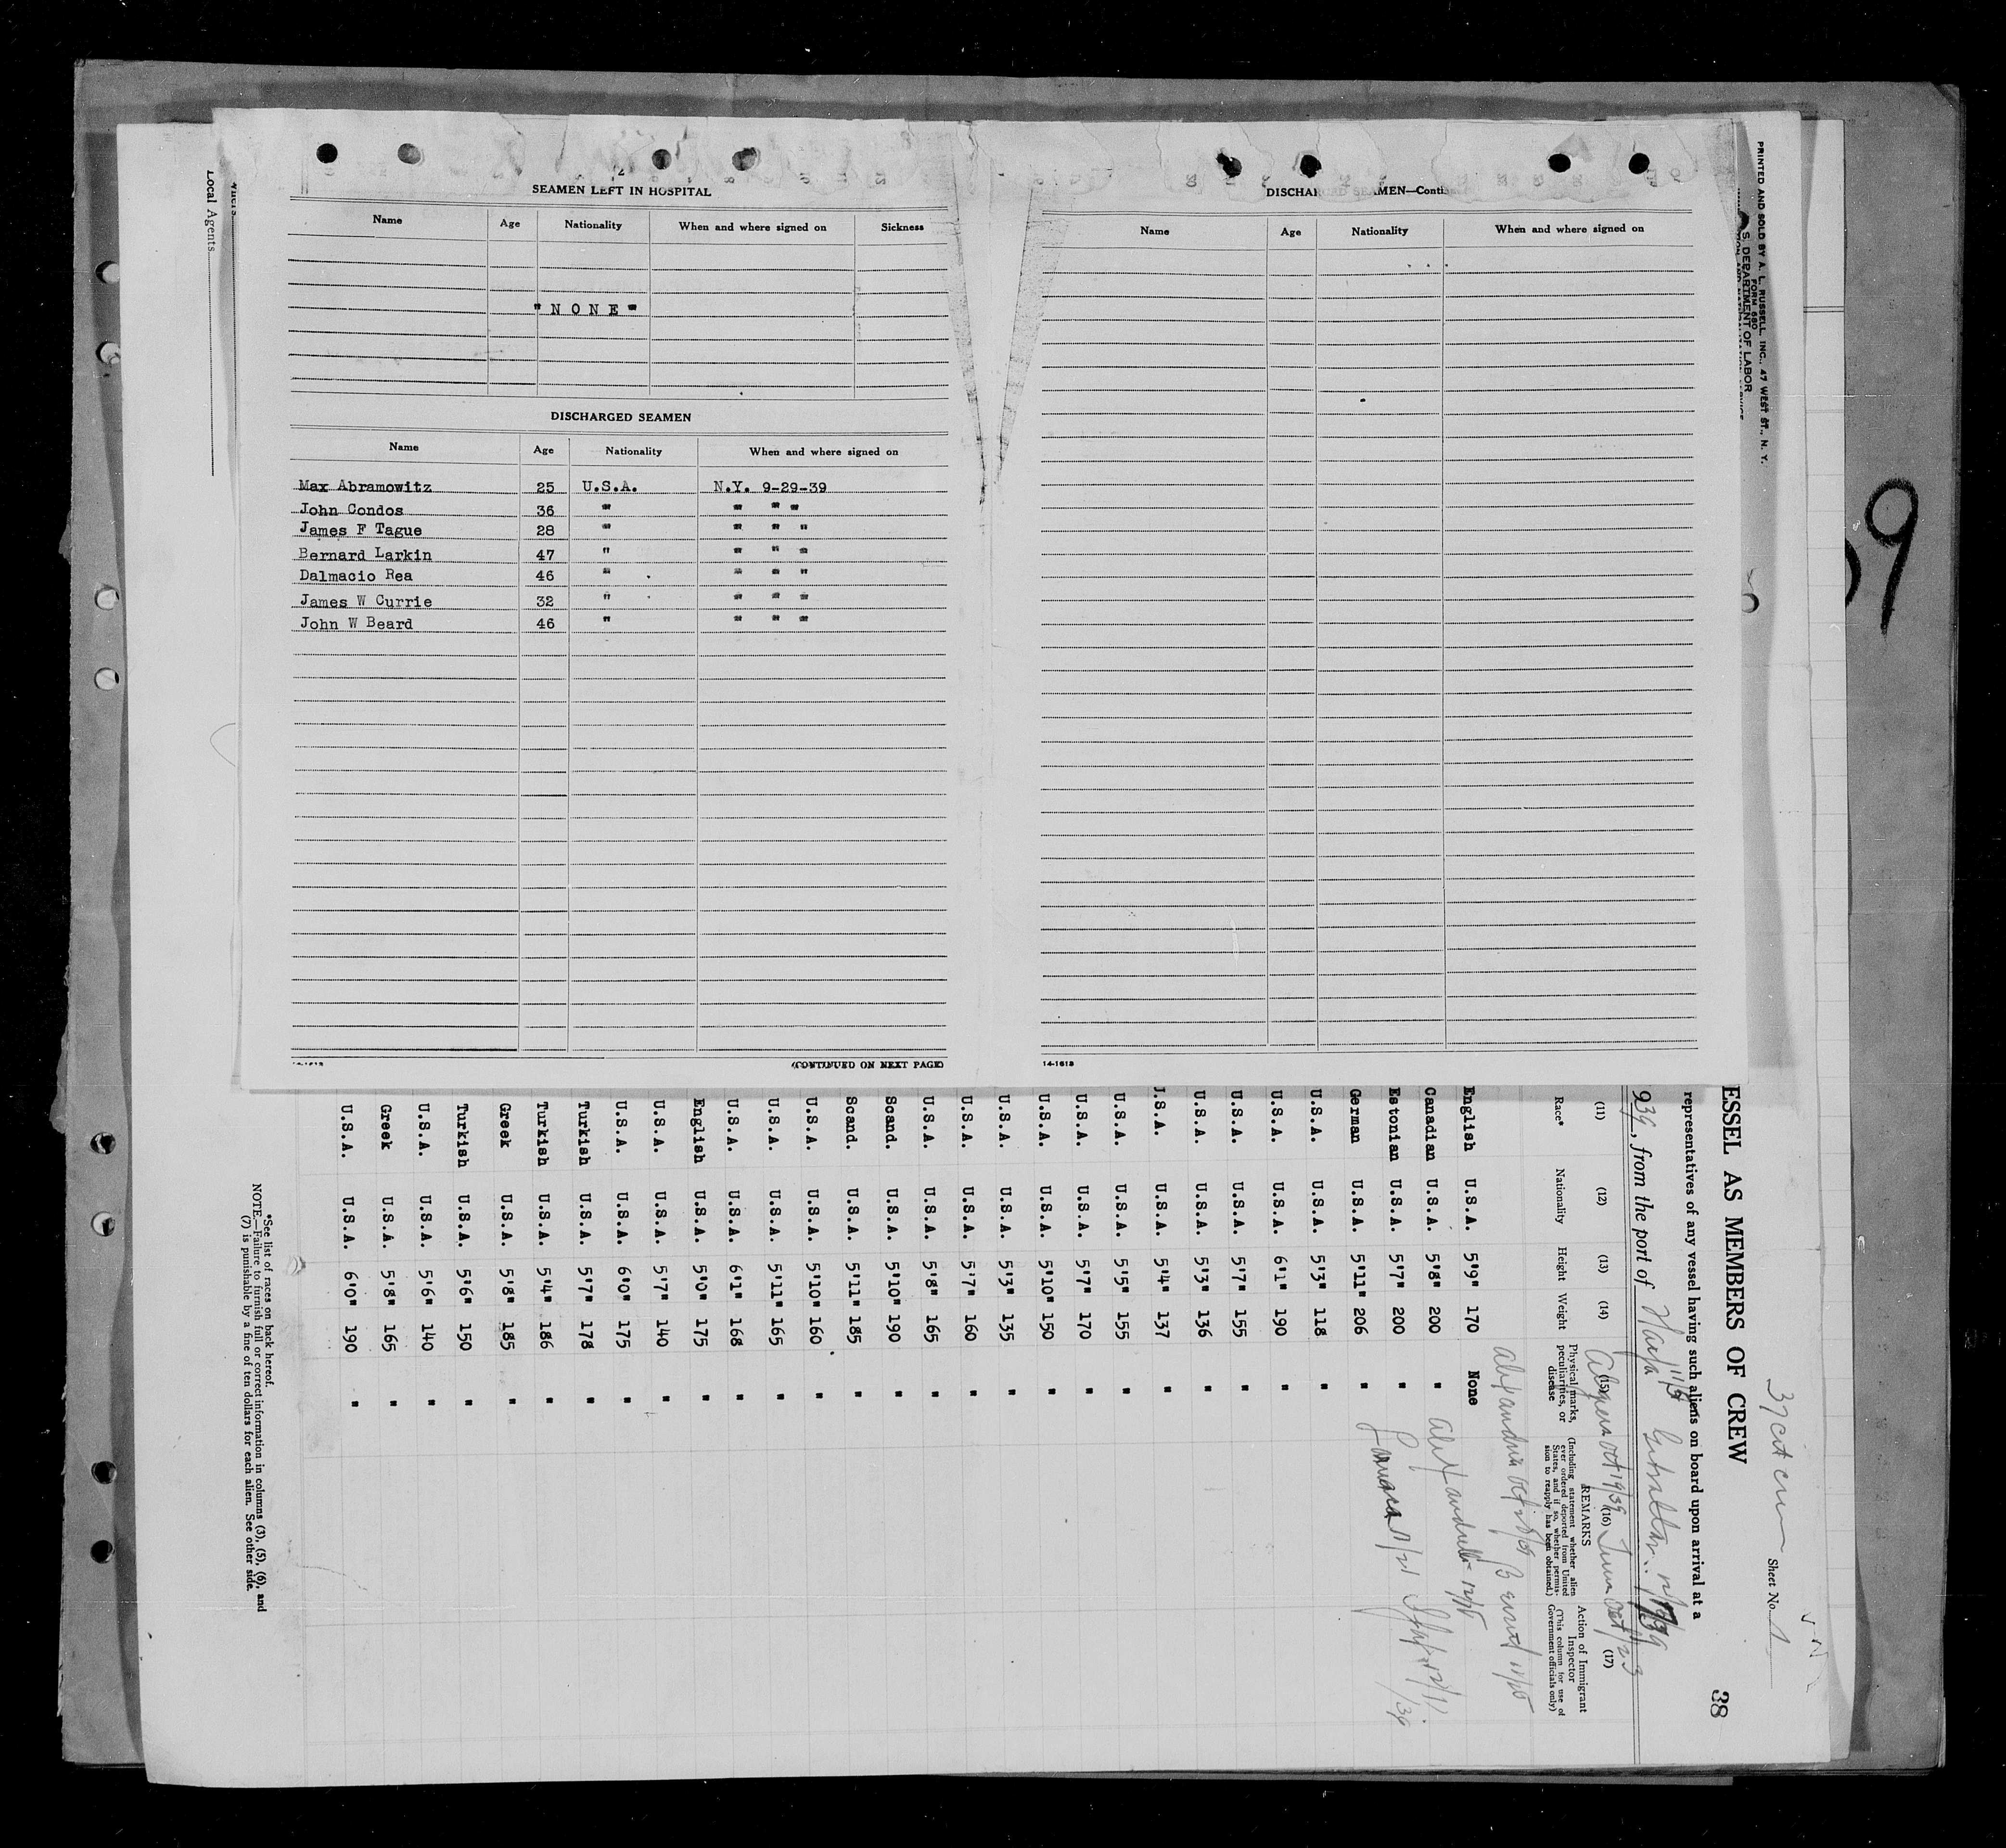 SEAMEN LEFT IN HOSPITAL
Name Age Nationality When and where signed on Sickness
"NONE"
DISCHARGED SEAMEN
Name Age Nationality When and where signed on
Max Abramowitz 25 U.S.A. N.Y. 9-29-39
John Condos 36 " " " "
James F Tague 28 " " " "
Bernard Larkin 47 " " " "
Dalmacio Rea 46 " " " "
James W Currie 32 " " " "
John W Beard 46 " " " "
(CONTINUED ON NEXT PAGE)
SEAMEN—Conti
Name Age Nationality When and where signed on
14-1618
Local Agents
PRINTED AND SOLD BY A. L. RUSSELL, INC., 47 WEST ST., N. Y.
FORM 680
S. DEPARTMENT OF LABOR
9
37 cit crew Sheet No. 1
38
ESSEL AS MEMBERS OF CREW
representatives of any vessel having such aliens on board upon arrival at a
939, from the port of Haifa Gibraltar
(11) (12) (13) (14) (15) (16) (17)
Race* Nationality Height Weight Physical marks, peculiarities, or disease
REMARKS
(Including statement whether alien ever ordered deported from United States, and if so, whether permission to reapply has been obtained.)
Action of Immigrant Inspector
(This column for use of Government officials only)
English U.S.A. 5'9" 170 None
Canadian U.S.A. 5'8" 200 "
Estonian U.S.A. 5'7" 200 "
German U.S.A. 5'11" 206 "
U.S.A. U.S.A. 5'3" 118 "
U.S.A. U.S.A. 6'1" 190 "
U.S.A. U.S.A. 5'7" 155 "
U.S.A. U.S.A. 5'3" 136 "
U.S.A. U.S.A. 5'4" 137 "
U.S.A. U.S.A. 5'5" 155 "
U.S.A. U.S.A. 5'7" 170 "
U.S.A. U.S.A. 5'10" 150 "
U.S.A. U.S.A. 5'3" 135 "
U.S.A. U.S.A. 5'7" 160 "
U.S.A. U.S.A. 5'8" 165 "
Scand. U.S.A. 5'10" 190 "
Scand. U.S.A. 5'11" 185 "
U.S.A. U.S.A. 5'10" 160 "
U.S.A. U.S.A. 5'11" 165 "
U.S.A. U.S.A. 6'1" 168 "
English U.S.A. 5'0" 175 "
U.S.A. U.S.A. 5'7" 140 "
U.S.A. U.S.A. 6'0" 175 "
Turkish U.S.A. 5'7" 178 "
Turkish U.S.A. 5'4" 186 "
Greek U.S.A. 5'8" 185 "
Turkish U.S.A. 5'6" 150 "
U.S.A. U.S.A. 5'6" 140 "
Greek U.S.A. 5'8" 165 "
U.S.A. U.S.A. 6'0" 190 "
*See list of races on back hereof.
NOTE.—Failure to furnish full or correct information in columns (3), (5), (6), and
(7) is punishable by a fine of ten dollars for each alien. See other side.